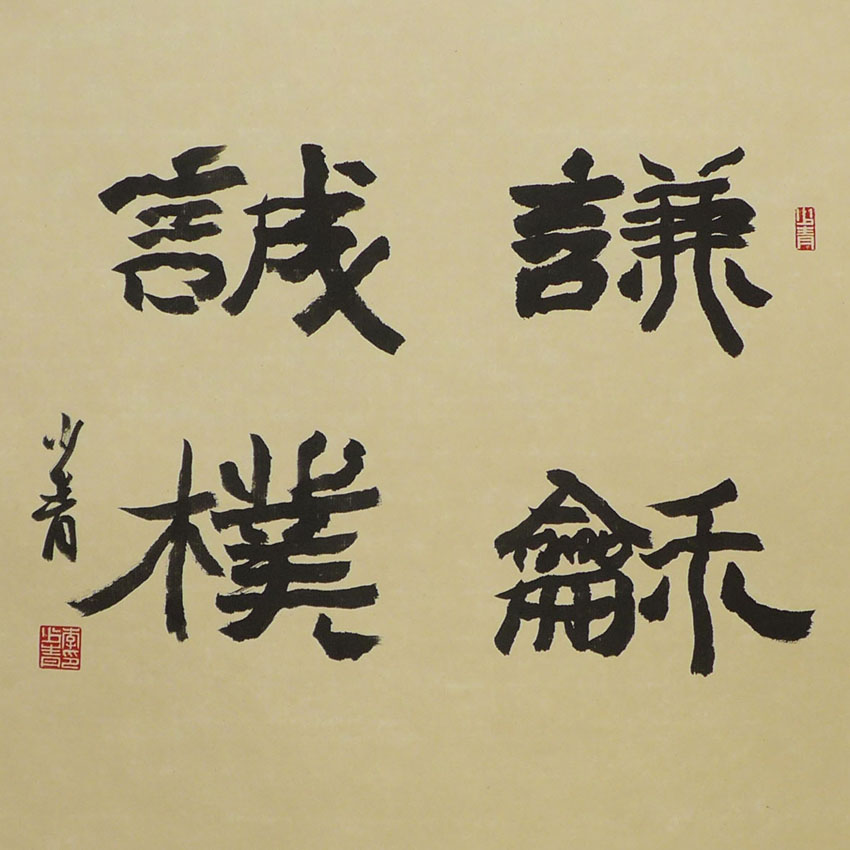 謙龢
誠樸
少青
少青
李少青印